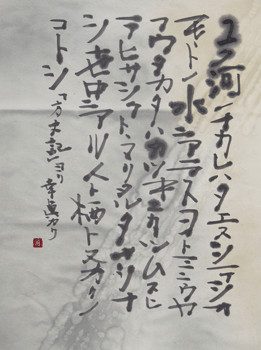 ユク河ノナカレハタエスシテシカ
モトノ水ニアラスヨトミニウカ
フウタカタハカツキエカツムスヒ
テヒサシクトトマリタルタメシナ
シ世中ニアル人ト栖ト又カクノ
コトシ「方丈記」ヨリ